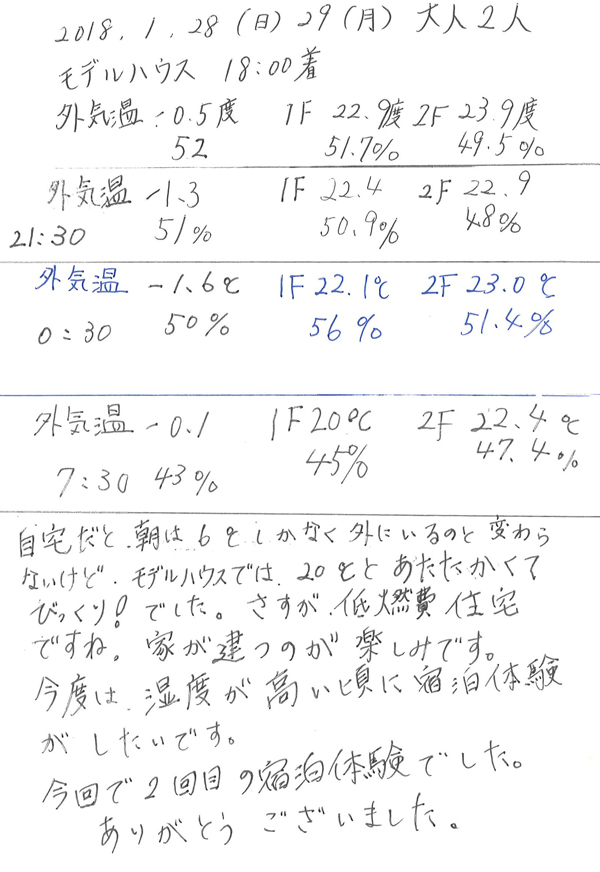 2018.1.28(日)29(月) 大人2人
モデルハウス 18:00着
外気温 -0.5度 1F 22.9度 2F 23.9度
52 51.7% 49.5%
外気温 -1.3 1F 22.4 2F 22.9
21:30 51% 50.9% 48%
外気温 -1.6℃ 1F 22.1℃ 2F 23.0℃
0:30 50% 56% 51.4%
外気温 -0.1 1F 20℃ 2F 22.4℃
7:30 43% 45% 47.4%
自宅だと、朝は6℃しかなく外にいるのと変わら
ないけど、モデルハウスでは、20℃とあたたかくて
びっくり!でした。さすが、低燃費住宅
ですね。家が建つのが楽しみです。
今度は、湿度が高い頃に宿泊体験
がしたいです。
今回で2回目の宿泊体験でした。
ありがとうございました。